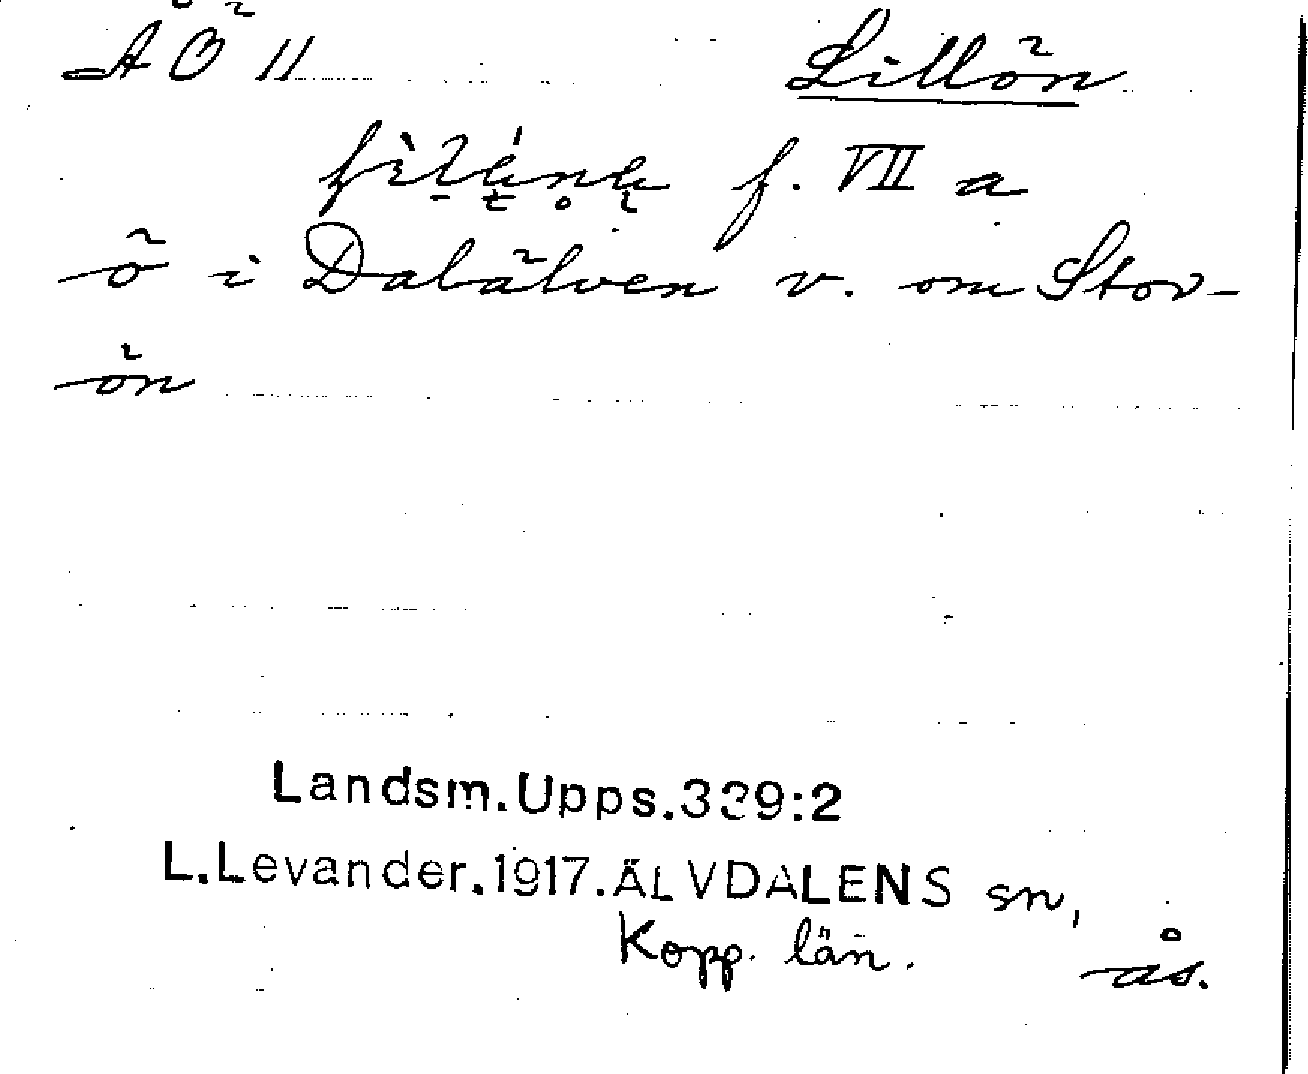 ÅÖ 11 Lillön
f. VII a
ö i Dalälven v. om Stor-
ön
Landsm.Upps.339:2
L.Levander.1917.ÄLVDALENS sn,
Kopp. län.
ås.